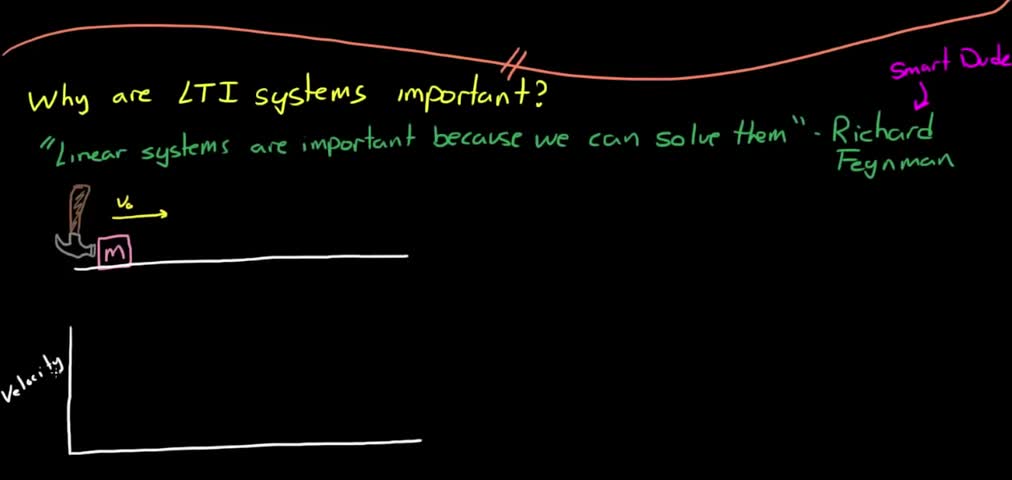 Smart Dude
Why are LTI systems important?
"Linear systems are important because we can solve them" - Richard
Feynman
v₀
m
Velocity